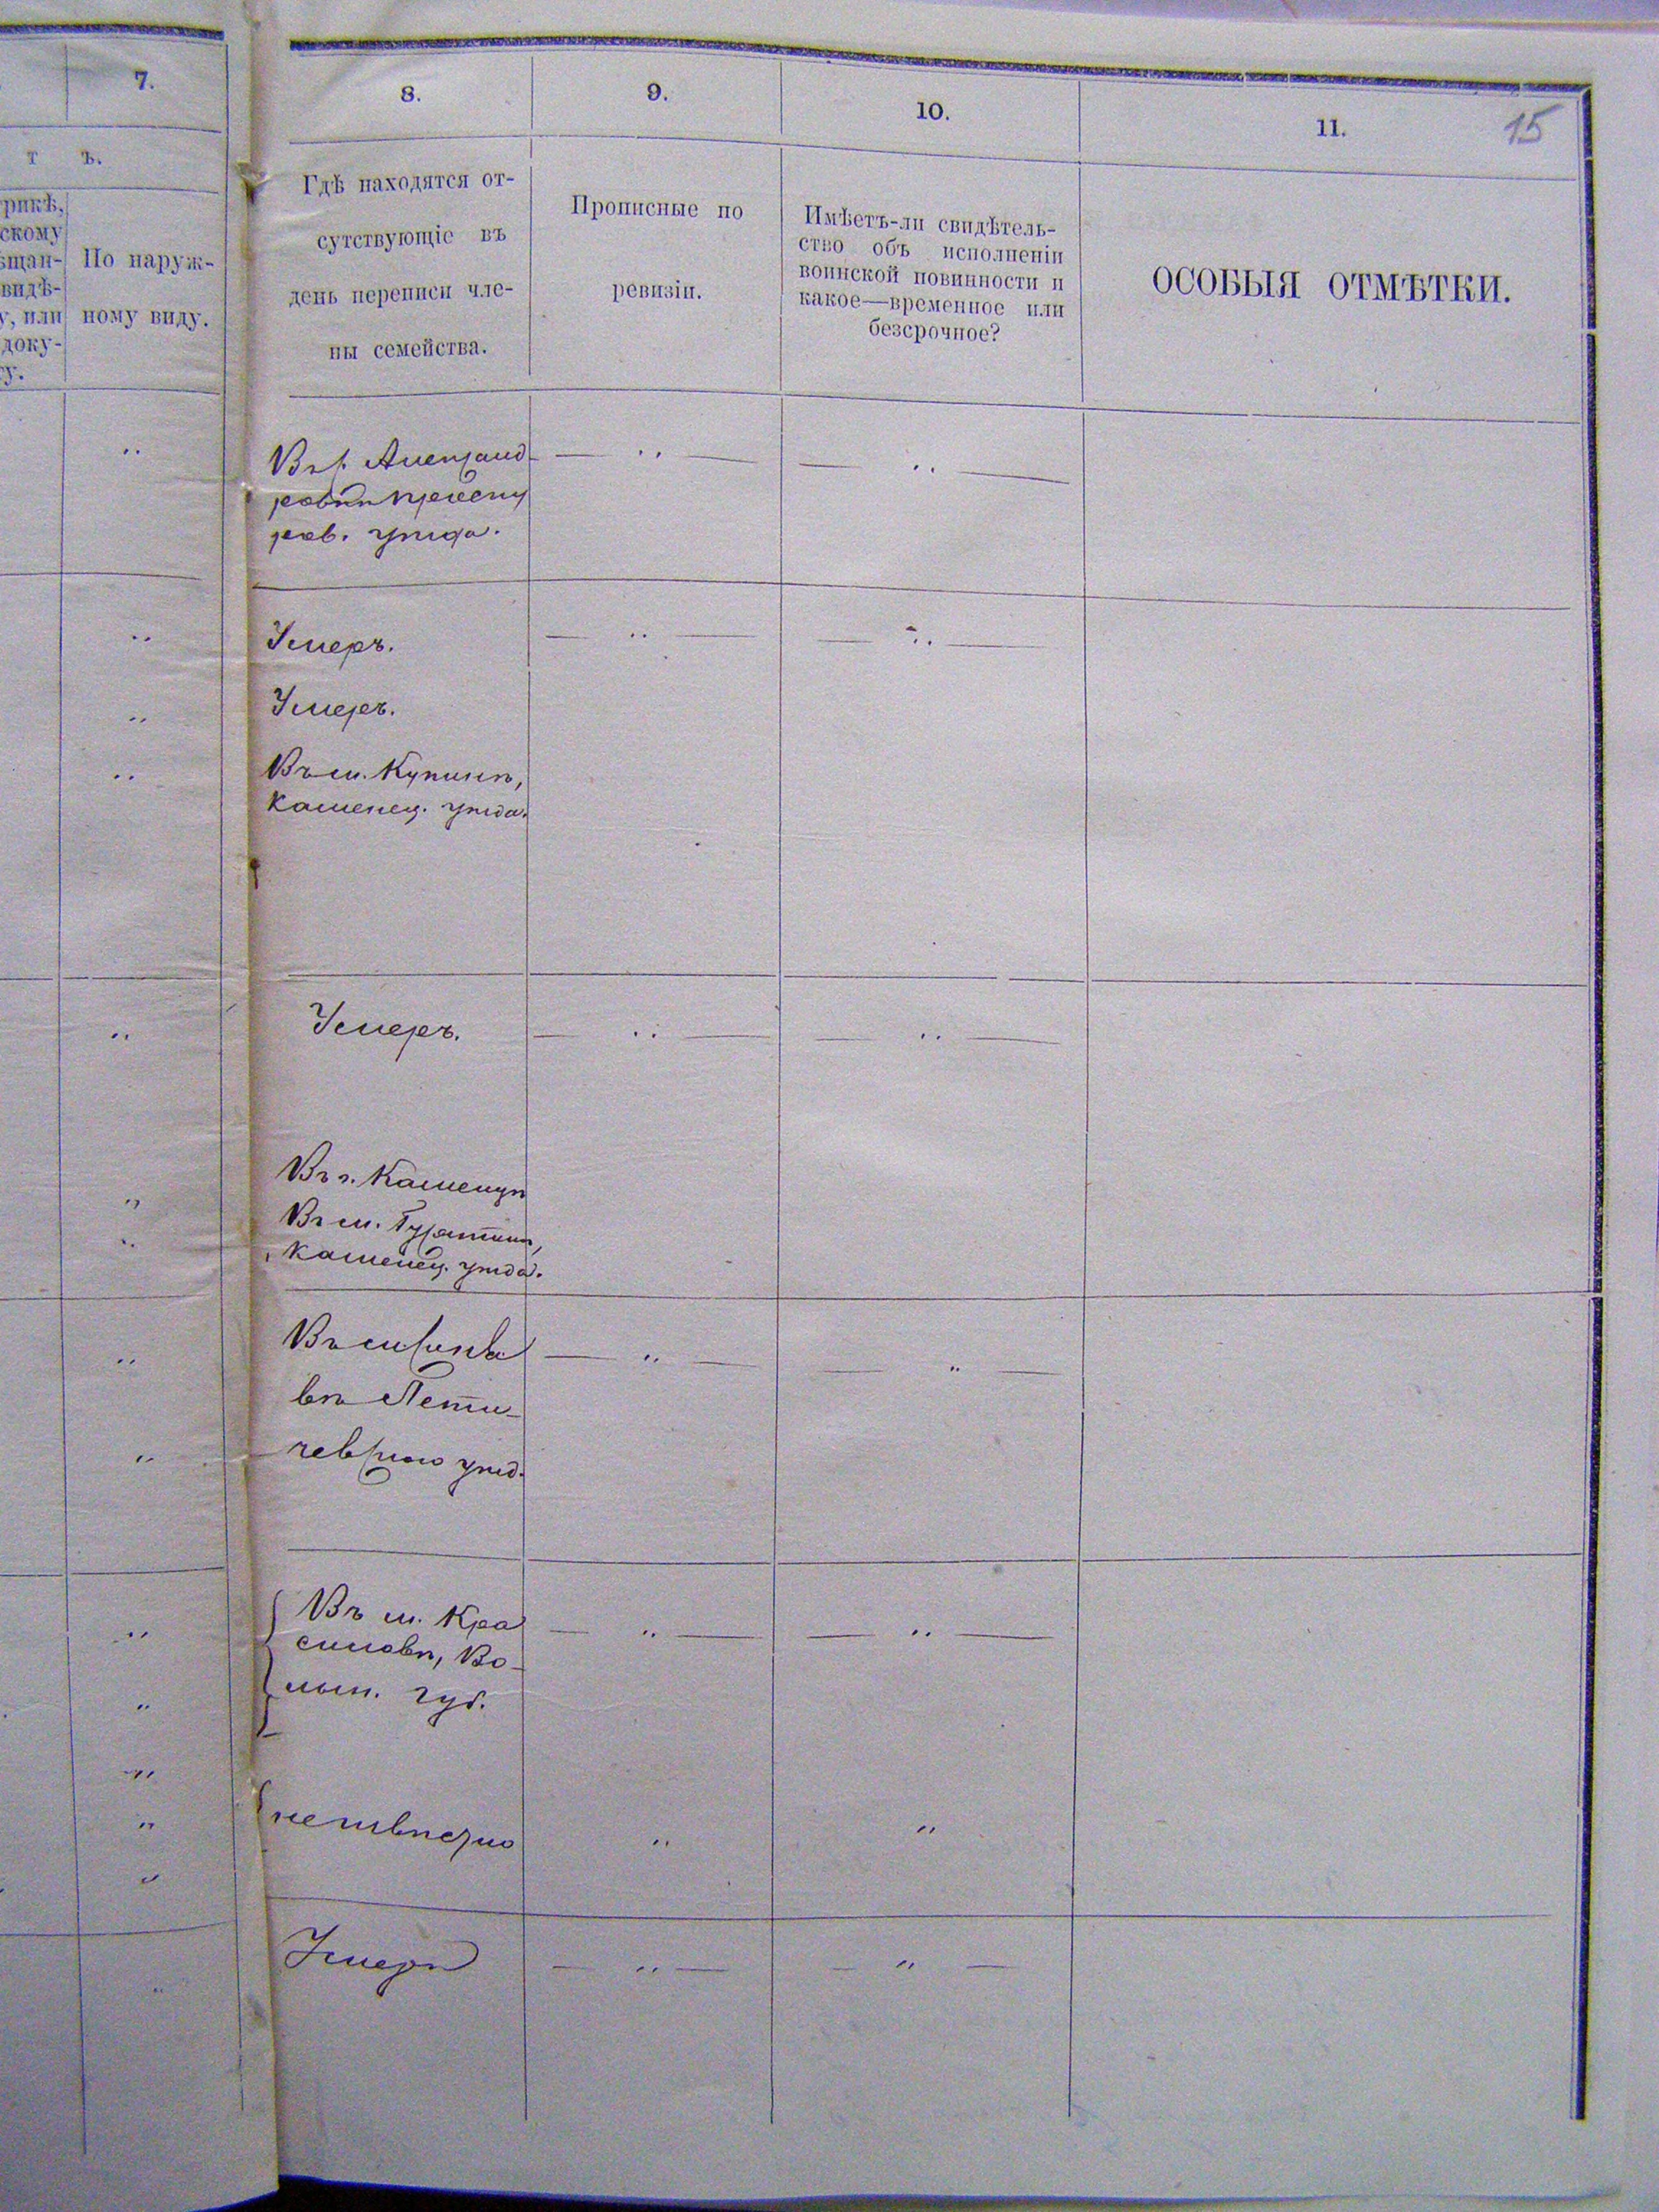 7.
8.
9.
10.
11.
15
т ъ.
рикѣ,
скому
ѣщан-
видѣ-
у, или
доку-
у.
По наруж-
ному виду.
Гдѣ находятся от-
сутствующіе въ
день переписи чле-
ны семейства.
Прописные по
ревизіи.
Имѣетъ-ли свидѣтель-
ство объ исполненіи
воинской повинности и
какое—временное или
безсрочное?
ОСОБЫЯ ОТМѢТКИ.
Въ с. Александ-
ровкѣ
ров. уѣзда.
Умеръ.
Умеръ.
Въ м. Купинѣ,
Каменец. уѣзда.
Умеръ.
Въ г. Каменцѣ
Въ м. Гусятинѣ,
Каменец. уѣзда.
Въ
вѣ Лети-
чевскаго уѣзд.
Въ м. Кра
силовѣ, Во-
лын. губ.
неизвѣстно
Умеръ